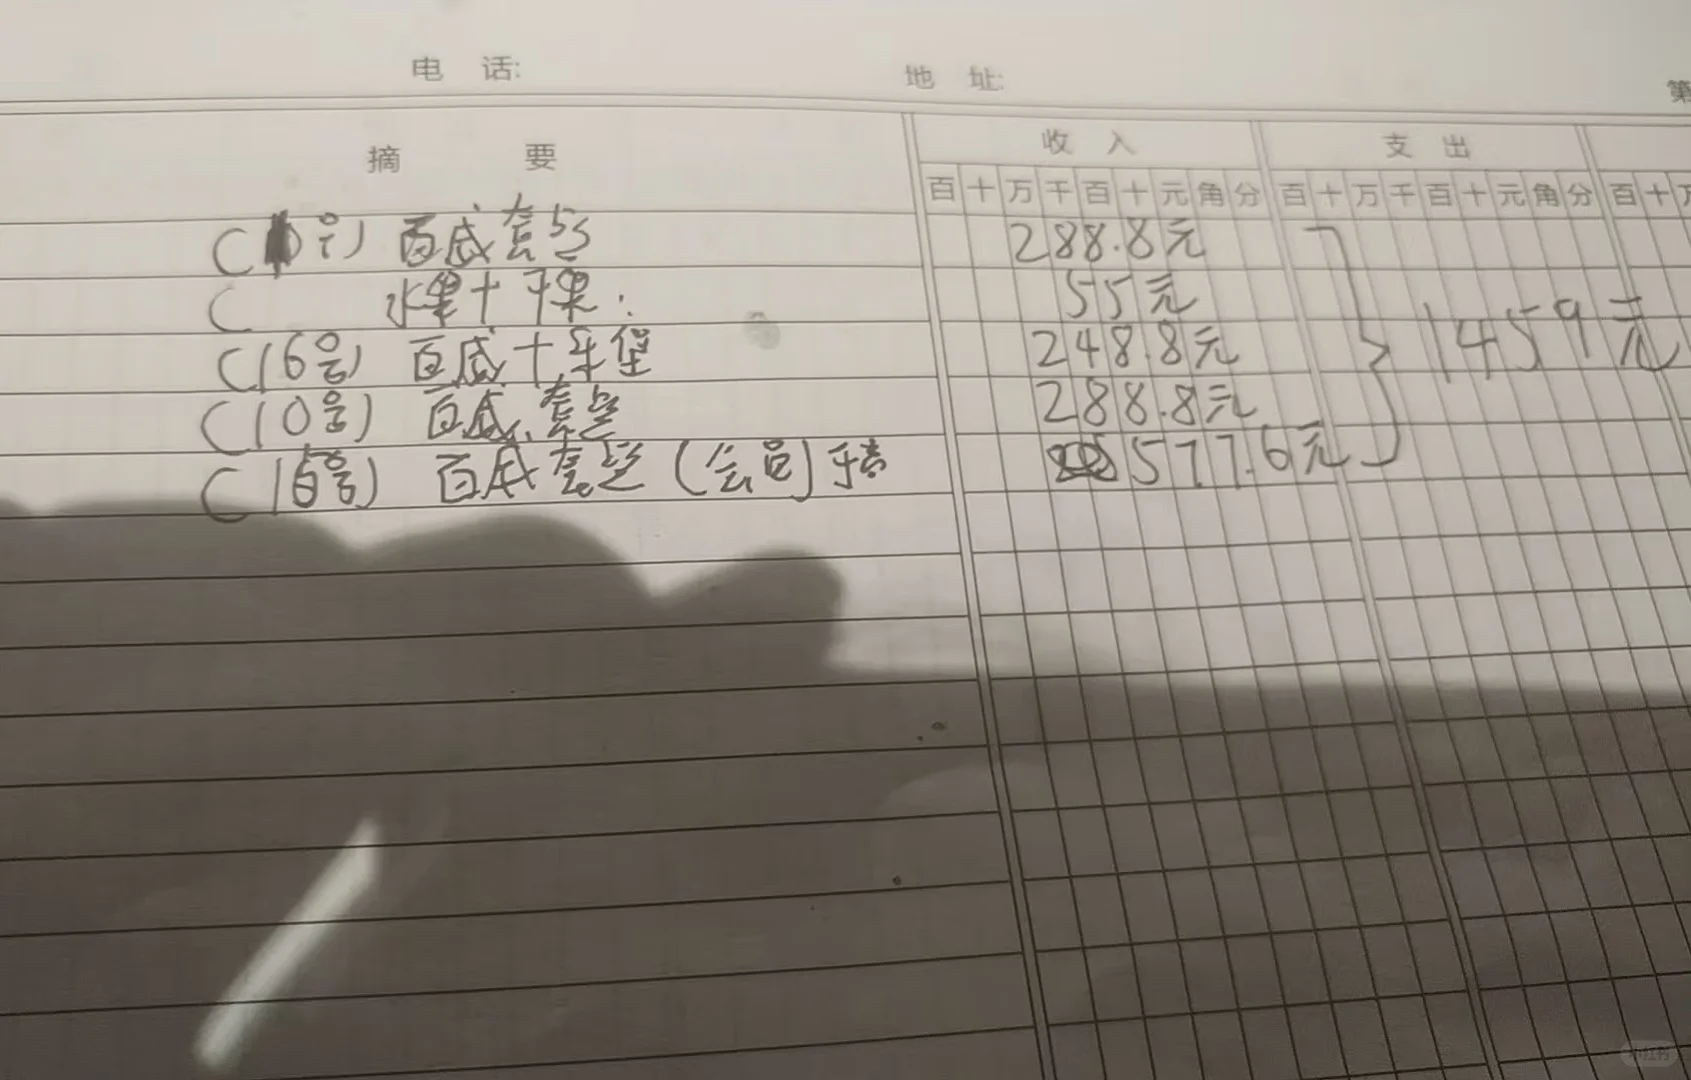 电 话: 地 址: 第
摘 要 收 入 支 出
百 十 万 千 百 十 元 角 分 百 十 万 千 百 十 元 角 分 百 十 万
号) 百威套 288.8元
( 水果+干果. 55元
(16号) 百威+牛堡 248.8元
(10号) 百威.套 288.8元
(15号) 百威套 (会员) 577.6元
1459元
小红书